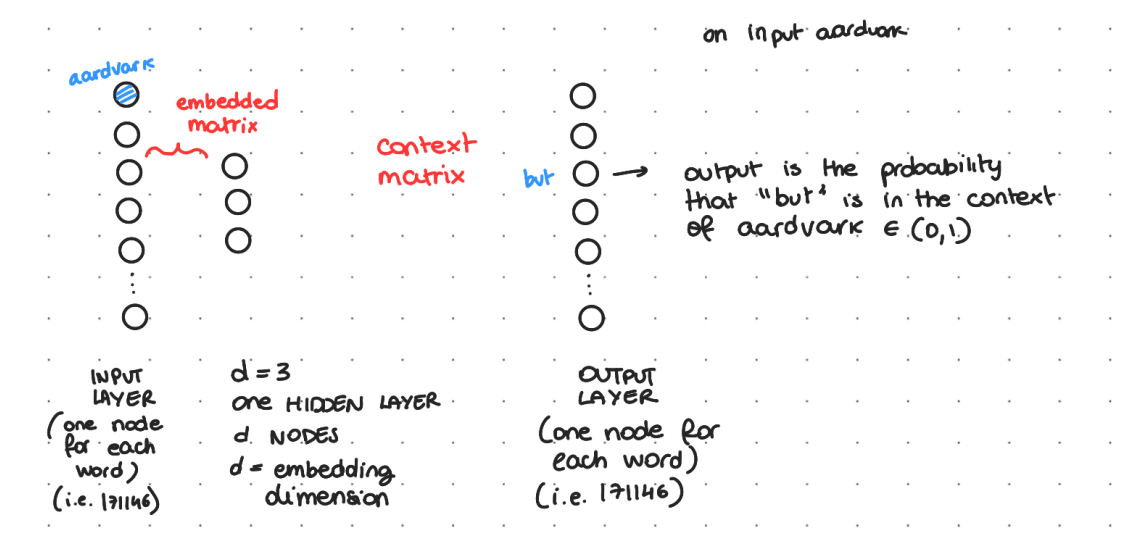 on input aardvark
aardvark
embedded
matrix
context
matrix
but
output is the probability
that "but" is in the context
of aardvark ∈ (0,1)
INPUT
LAYER
(one node
for each
word)
(i.e. 171146)
d = 3
one HIDDEN LAYER
d NODES
d = embedding
dimension
OUTPUT
LAYER
(one node for
each word)
(i.e. 171146)